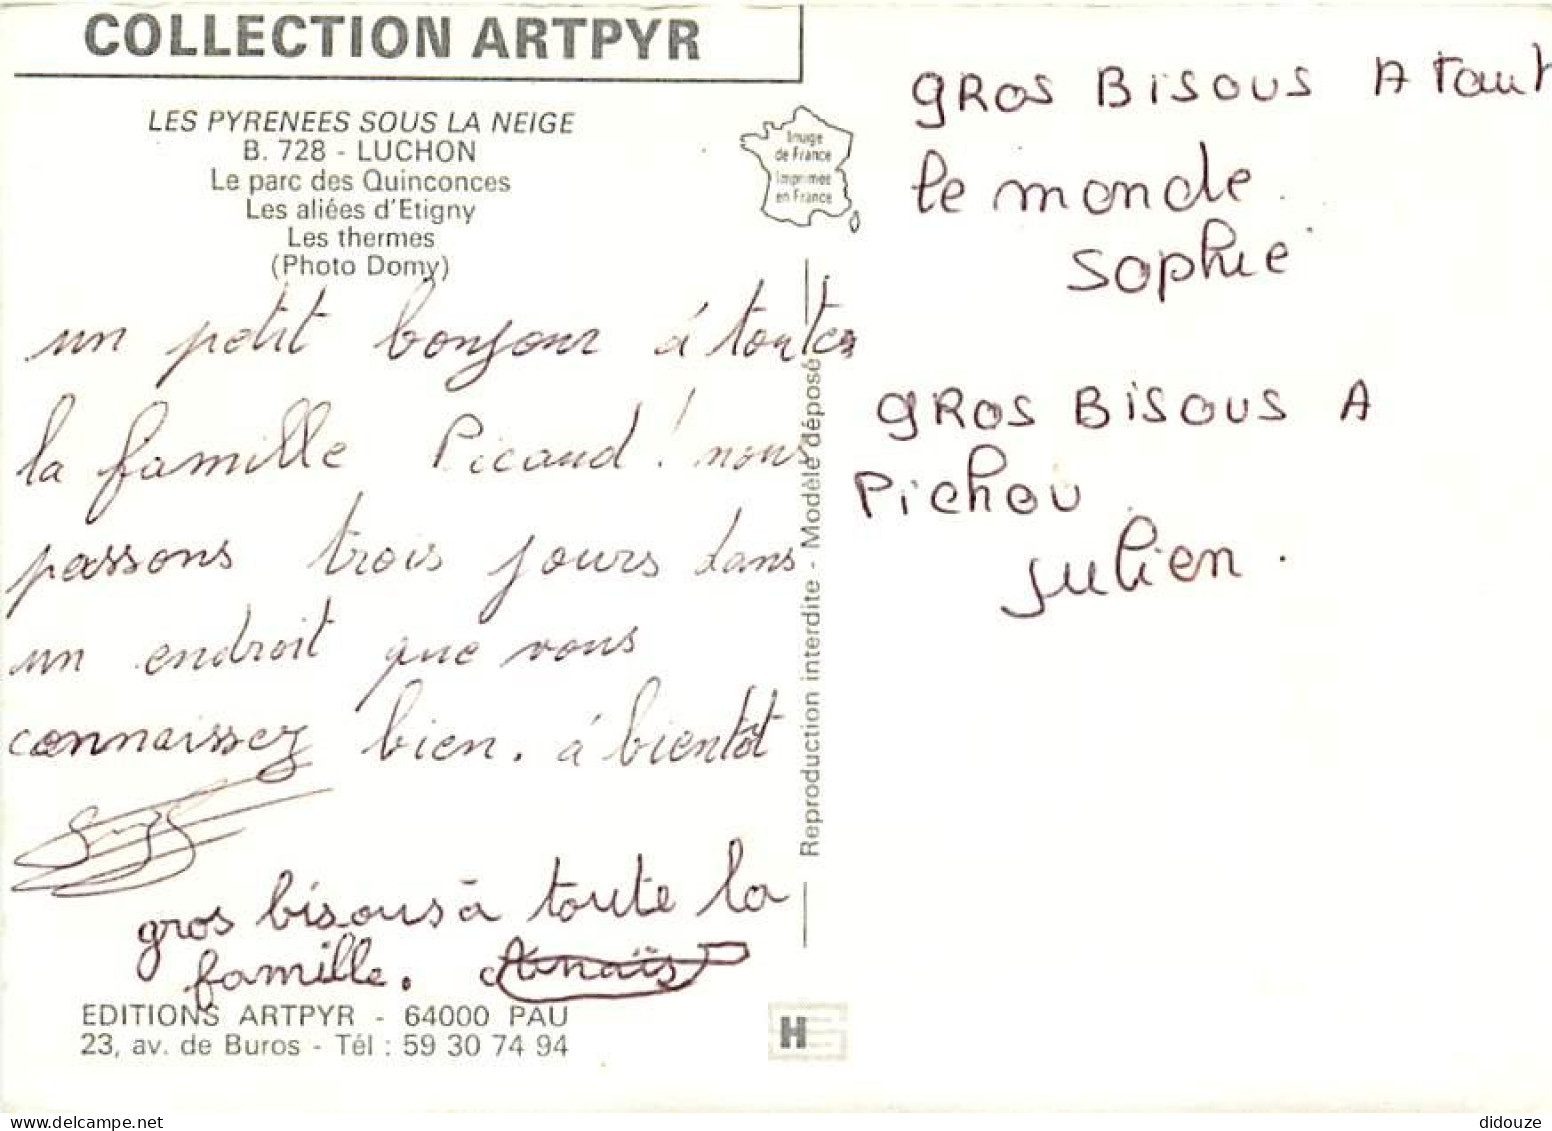 COLLECTION ARTPYR
LES PYRENEES SOUS LA NEIGE
B. 728 - LUCHON
Le parc des Quinconces
Les aliées d'Etigny
Les thermes
(Photo Domy)
Image
de France
Imprimée
en France
un petit bonjour à toutes
la famille Picaud ! nous
passons trois jours dans
un endroit que vous
connaissez bien. à bientôt
gros bisous à toute la
famille. Anaïs
EDITIONS ARTPYR - 64000 PAU
23, av. de Buros - Tél : 59 30 74 94
Reproduction interdite - Modèle déposé
H
GROS BISOUS A tout
le monde.
Sophie
GROS BISOUS A
PiChou
Julien.
didouze